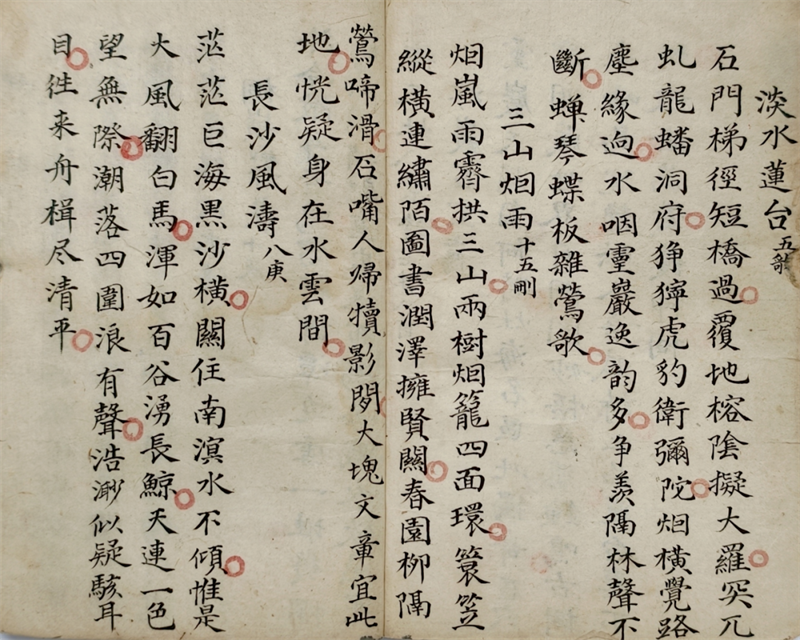 淡水蓮台五歌
石門梯徑短橋過覆地榕陰擬大羅突兀
虬龍蟠洞府狰獰虎豹衛彌陀烟橫覺路
塵緣迥水咽靈巖逸韵多争羨隔林聲不
斷蝉琴蝶板雜鶯歌
三山烟雨十五刪
烟嵐雨霽拱三山兩樹烟籠四面環簑笠
縱橫連繡陌圖書潤澤擁賢關春園柳隔
鶯啼滑石嘴人歸犢影閒大塊文章宜此
地恍疑身在水雲間
長沙風濤八庚
茫茫巨海黑沙橫關住南溟水不傾惟是
大風翻白馬渾如百谷湧長鯨天連一色
望無際潮落四圍浪有聲浩渺似疑駭耳
目往来舟楫尽清平